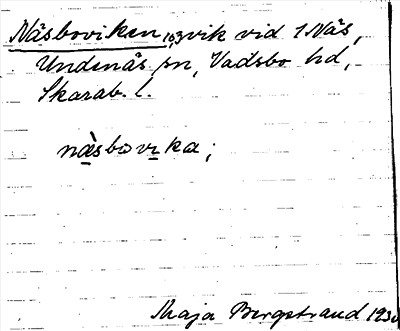 Näsboviken, 103 vik vid 1 Näs,
Undenäs sn, Vadsbo hd,
Skarab. l.
näsbovıka;
Maja Bergstrand 193